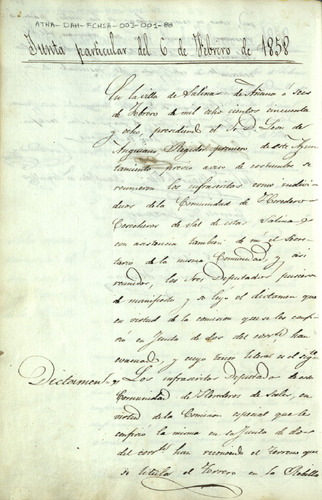 ATHA-DAH-FCHSA-003-001-88
Junta particular del 6 de Febrero de 1858
En la villa de Salinas de Añana a seis
de Febrero de mil ocho cientos cincuenta
y ocho, presidiendo el Sr. D. Leon de
Angulo Regidor primero de este Ayun
tamiento previo aviso de costumbre se
reunieron los infrascritos como indivi
duos de la Comunidad de Herederos
Caballeros de Sal de estas Salinas
con asistencia tambien de mi el Secre
tario de la misma Comunidad, y asi
reunidos, los Sres Diputados pusieron
de manifiesto y se leyó el dictamen que
en virtud de la comision que se les confi
rio en Junta de dos del corrte. han
evacuado, y cuyo tenor literal es el sigte.
Dictamen
Los infrascritos Diputados de esta
Comunidad de Herederos de Sales, en
virtud de la Comision especial que les
confirió la misma en la Junta de dos
del corrte. han reconocido el terreno que
se titula el Terrero en la